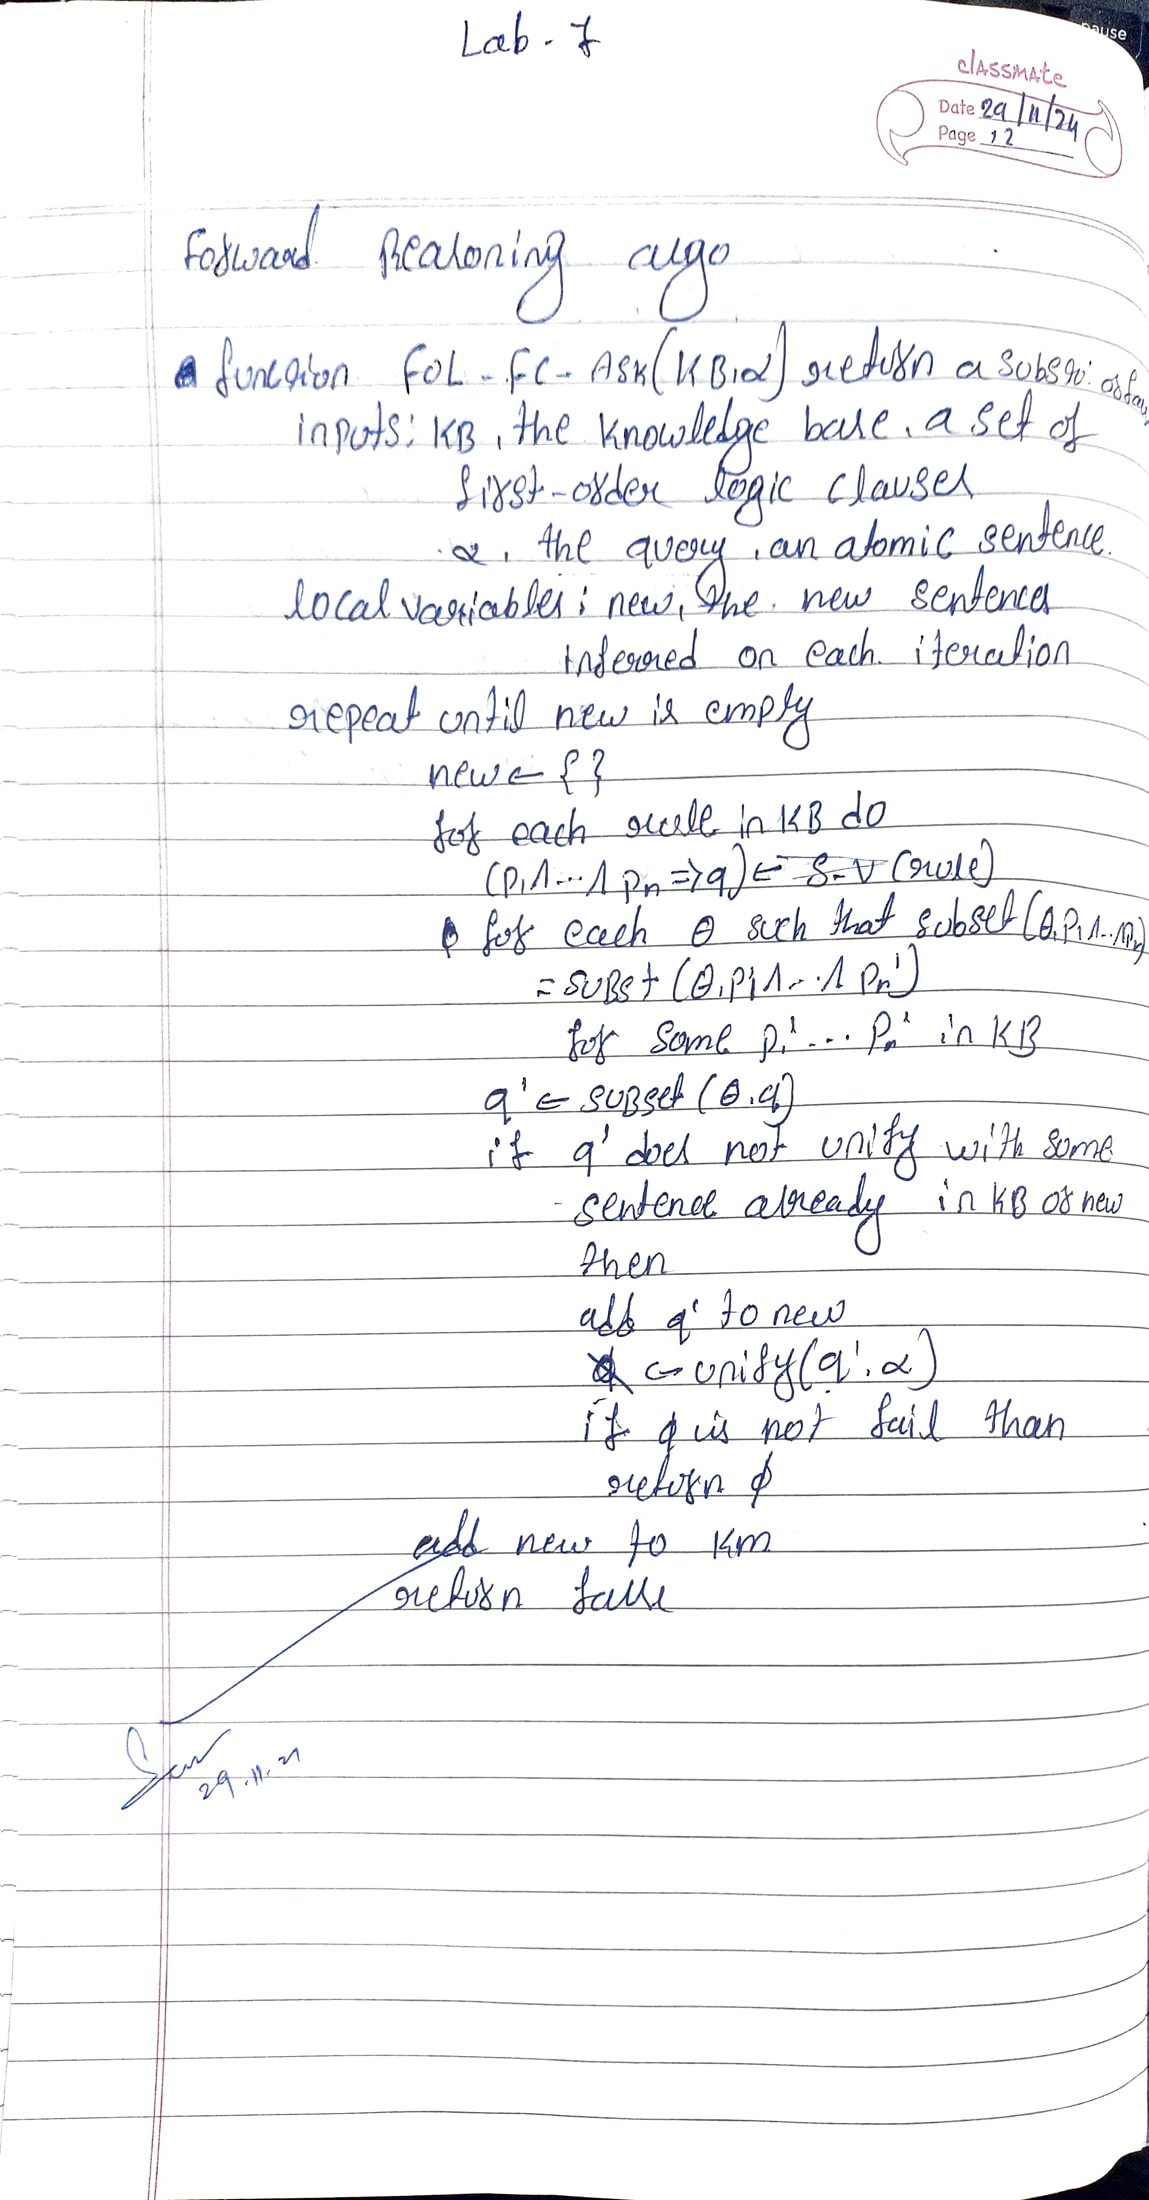 Lab-7
pause
classmate
Date 29/11/24
Page 12
Forward Reasoning algo
function FOL-FC-ASK(KB,α) return a substi or fal
inputs: KB, the knowledge base, a set of
first-order logic clauses
α, the query, an atomic sentence.
local variables: new, the new sentences
inferred on each iteration
repeat until new is empty
new ← { }
for each rule in KB do
(p1 ∧ ... ∧ pn => q) ← S-V (rule)
for each θ such that subset(θ, P1 ∧ .. ∧ Pn)
= SUBST (θ, p1' ∧ ... ∧ pn')
for some p1' ... Pn' in KB
q' ← SUBset (θ, q)
if q' does not unify with some
sentence already in KB or new
then
add q' to new
← unify(q', α)
if φ is not fail than
return φ
add new to KM
return false
29.11.21